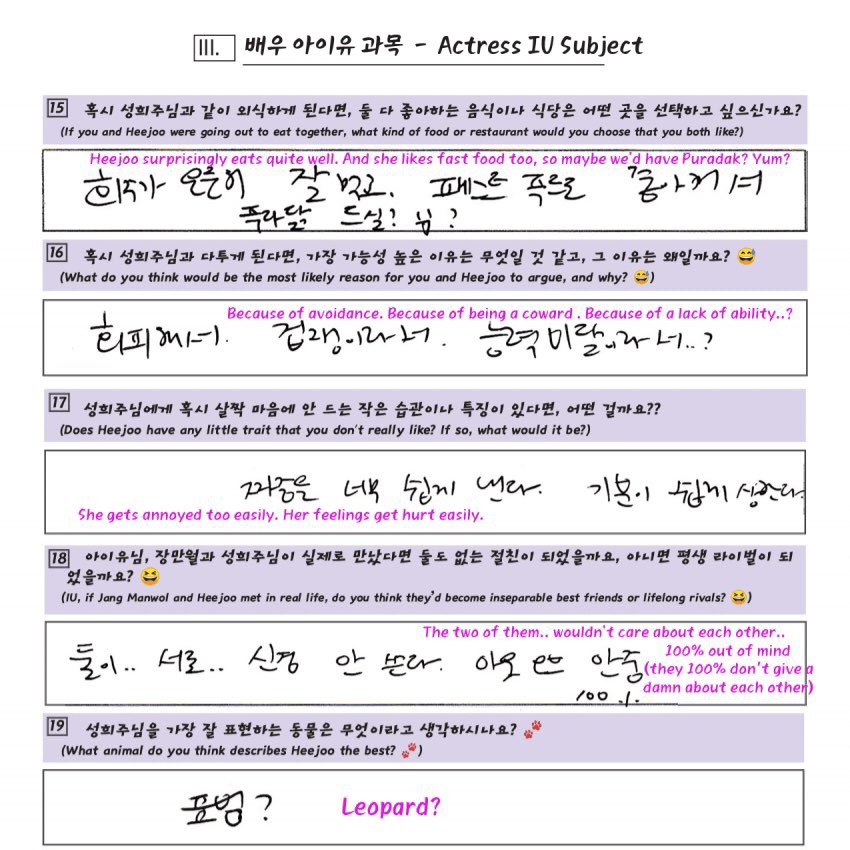 III. 배우 아이유 과목 - Actress IU Subject
15 혹시 성희주님과 같이 외식하게 된다면, 둘 다 좋아하는 음식이나 식당은 어떤 곳을 선택하고 싶으신가요?
(If you and Heejoo were going out to eat together, what kind of food or restaurant would you choose that you both like?)
Heejoo surprisingly eats quite well. And she likes fast food too, so maybe we'd have Puradak? Yum?
희주가 은근히 잘 먹고. 패스트 푸드도 좋아해서
푸라닭 드실? 냠?
16 혹시 성희주님과 다투게 된다면, 가장 가능성 높은 이유는 무엇일 것 같고, 그 이유는 왜일까요? 😅
(What do you think would be the most likely reason for you and Heejoo to argue, and why? 😅)
Because of avoidance. Because of being a coward . Because of a lack of ability..?
회피해서. 겁쟁이라서. 능력미달이라서..?
17 성희주님에게 혹시 살짝 마음에 안 드는 작은 습관이나 특징이 있다면, 어떤 걸까요??
(Does Heejoo have any little trait that you don't really like? If so, what would it be?)
짜증을 너무 쉽게 낸다. 기분이 쉽게 상한다.
She gets annoyed too easily. Her feelings get hurt easily.
18 아이유님, 장만월과 성희주님이 실제로 만났다면 둘도 없는 절친이 되었을까요, 아니면 평생 라이벌이 되
었을까요? 😆
(IU, if Jang Manwol and Heejoo met in real life, do you think they'd become inseparable best friends or lifelong rivals? 😆)
The two of them.. wouldn't care about each other..
둘이.. 서로.. 신경 안 쓴다. 아웃 오브 안중
100%
100% out of mind
(they 100% don't give a
damn about each other)
19 성희주님을 가장 잘 표현하는 동물은 무엇이라고 생각하시나요? 🐾
(What animal do you think describes Heejoo the best? 🐾)
표범? Leopard?